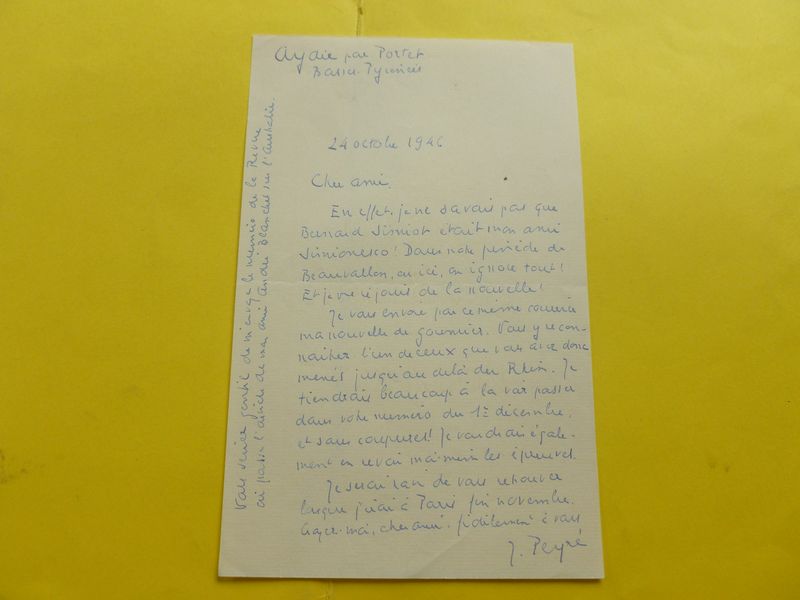 Aydie par Portet
Basses-Pyrénées
24 octobre 1946
Cher ami,
En effet, je ne savais pas que
Bernard Simiot était mon ami
Simionesco! Dans notre période de
Beauvallon, ou ici, on ignore tout!
Et je me réjouis de la nouvelle!
Je vous envoie par ce même courrier
ma nouvelle de goumiers. Vous y recon-
naîtrez l'un de ceux que vous avez donc
menés jusqu'au delà du Rhin. Je
tiendrais beaucoup à la voir passer
dans votre numéro du 1er décembre,
et sans coupures! Je voudrais égale-
ment en revoir moi-même les épreuves.
Je serai ravi de vous retrouver
lorsque j'irai à Paris fin novembre.
Croyez-moi, cher ami, fidèlement à vous
J. Peyré
Vous seriez gentil de m'envoyer le numéro de la Revue
où passa l'article de mon ami André Blanchet sur l'Australie.